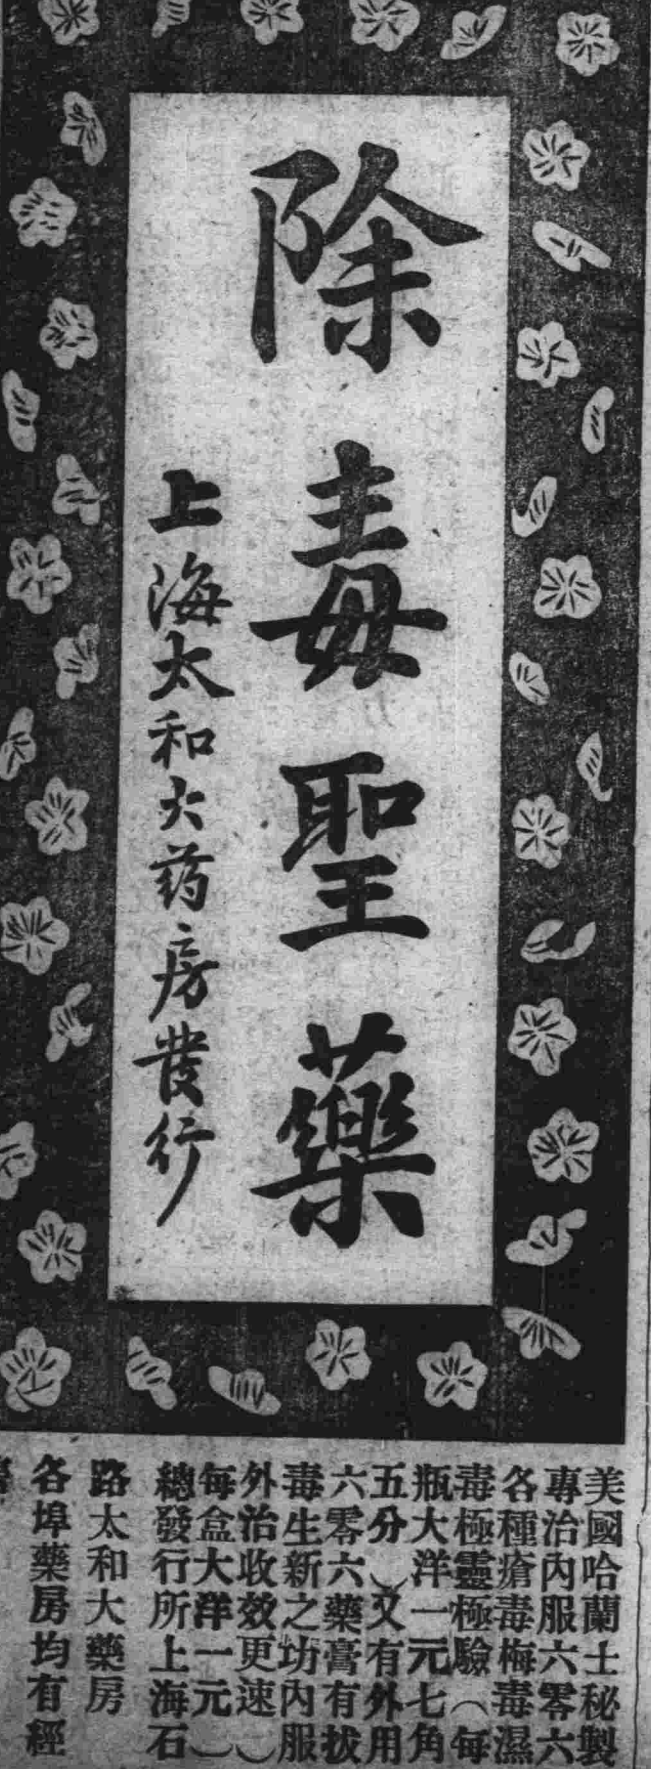 除毒聖藥
上海太和大药房發行
美國哈蘭士秘製
專治內服六零六
各種瘡毒梅毒濕
毒極靈極驗（每
瓶大洋一元七角
五分）又有外用
六零六藥膏有拔
毒生新之功內服
外治收效更速（
每盒大洋一元）
總發行所上海石
路太和大藥房
各埠藥房均有經